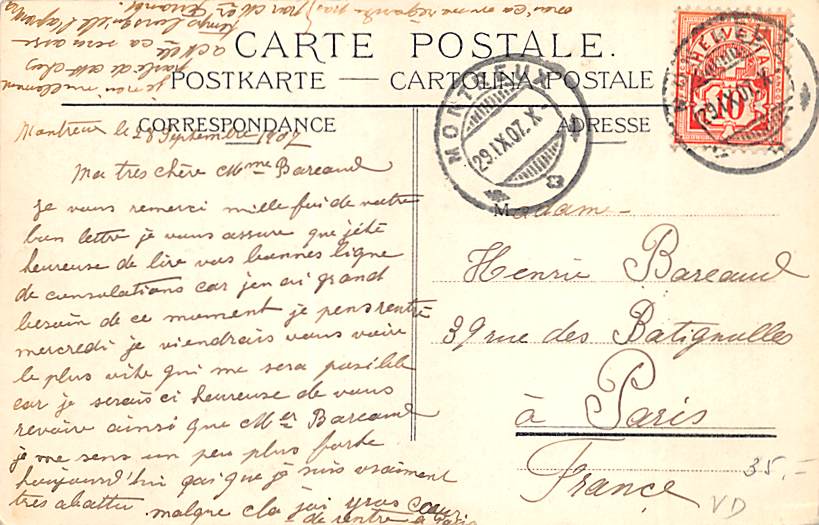 CARTE POSTALE.
POSTKARTE — CARTOLINA POSTALE
CORRESPONDANCE
ADRESSE
HELVETIA
10
MONTREUX
29.IX.07.X
29.IX.07.X
Montreux le 28 Septembre 1907
Ma tres chère Mme Bareaud
je vous remerci mille fois de votre
bon lettre je vous assure que j'été
heureuse de lire vos bonnes ligne
de consolations car jen ai grand
besoin de ce moment je pens rentré
mercredi je viendrais vous voire
le plus vite qui me sera posible
car je serais ci heureuse de vous
revoire ainsi que Mer Bareaud
je me sens un peu plus forte
houjourd'hui quoique je suis vraiment
tres abattu malgre cla jai gros cœur
de rentre a Paris
Madam
Henrie Bareaud
39 rue des Batignolles
à Paris
France
35.-
VD